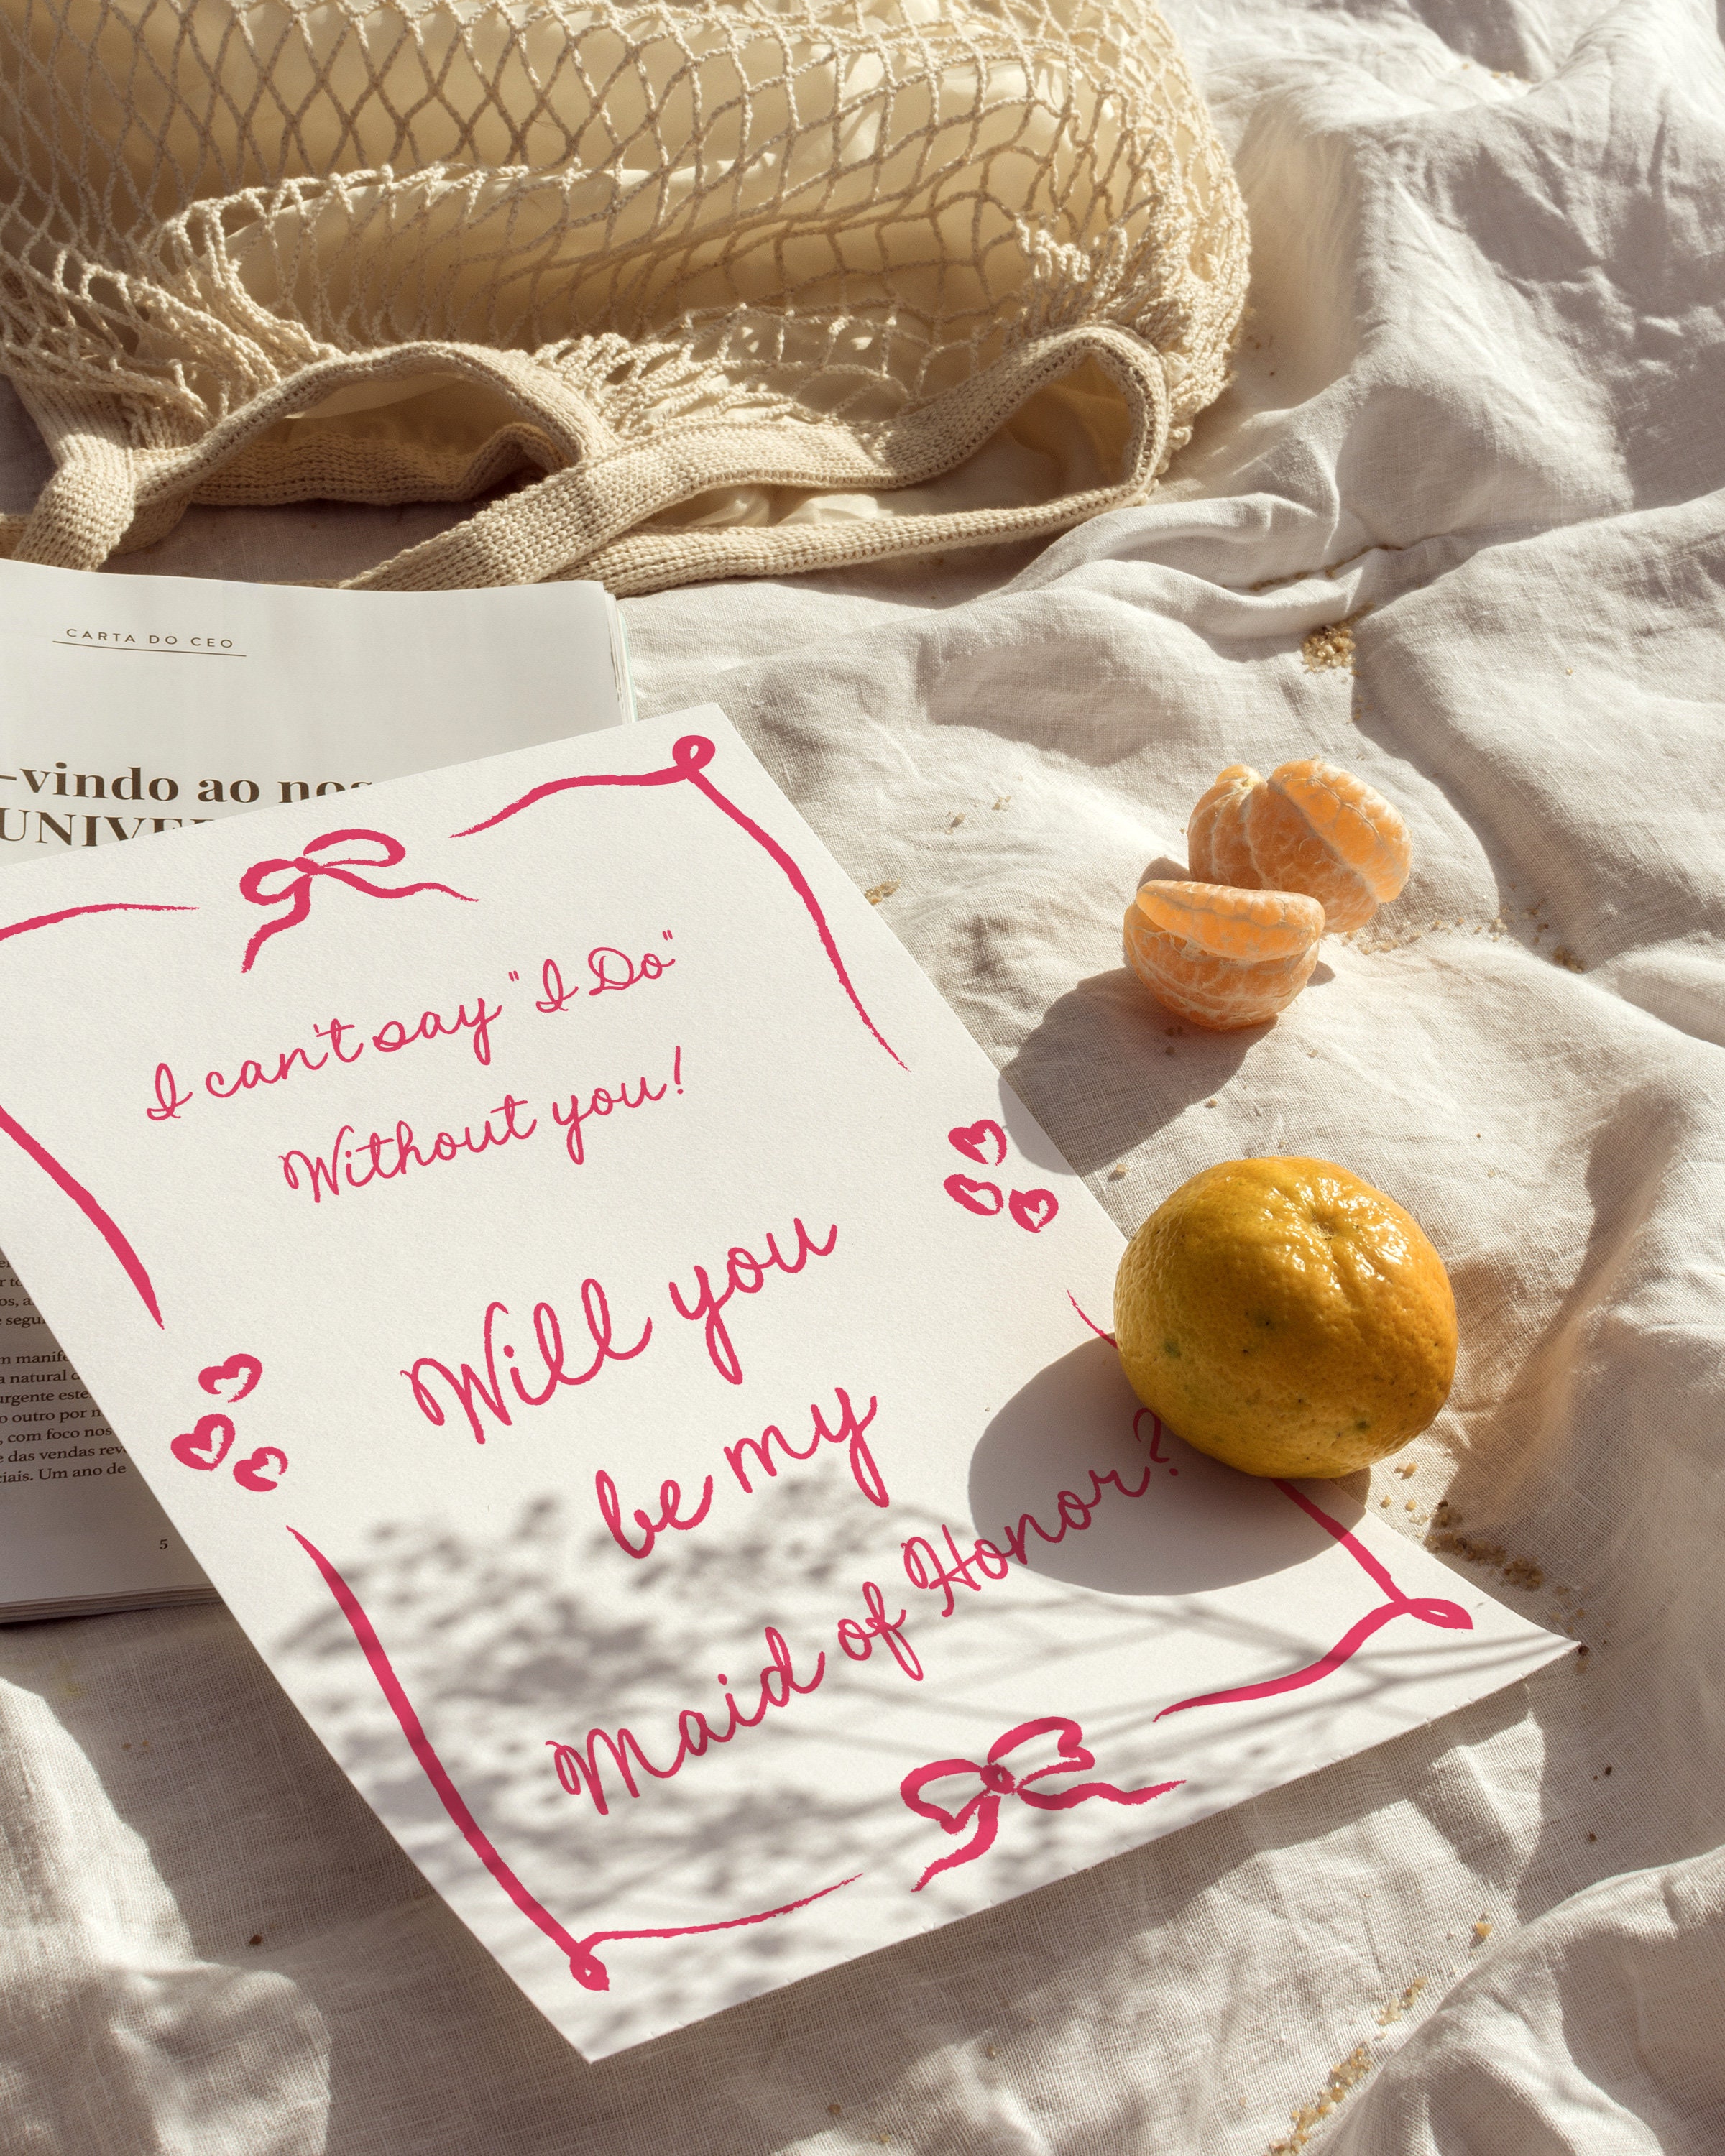 CARTA DO CEO
-vindo ao
I can't say "I Do"
Without you!
Will you
be my
Maid of Honor?
m
a natural
urgente este
o outro por
, com foco nos
e das vendas
ciais. Um ano de
5